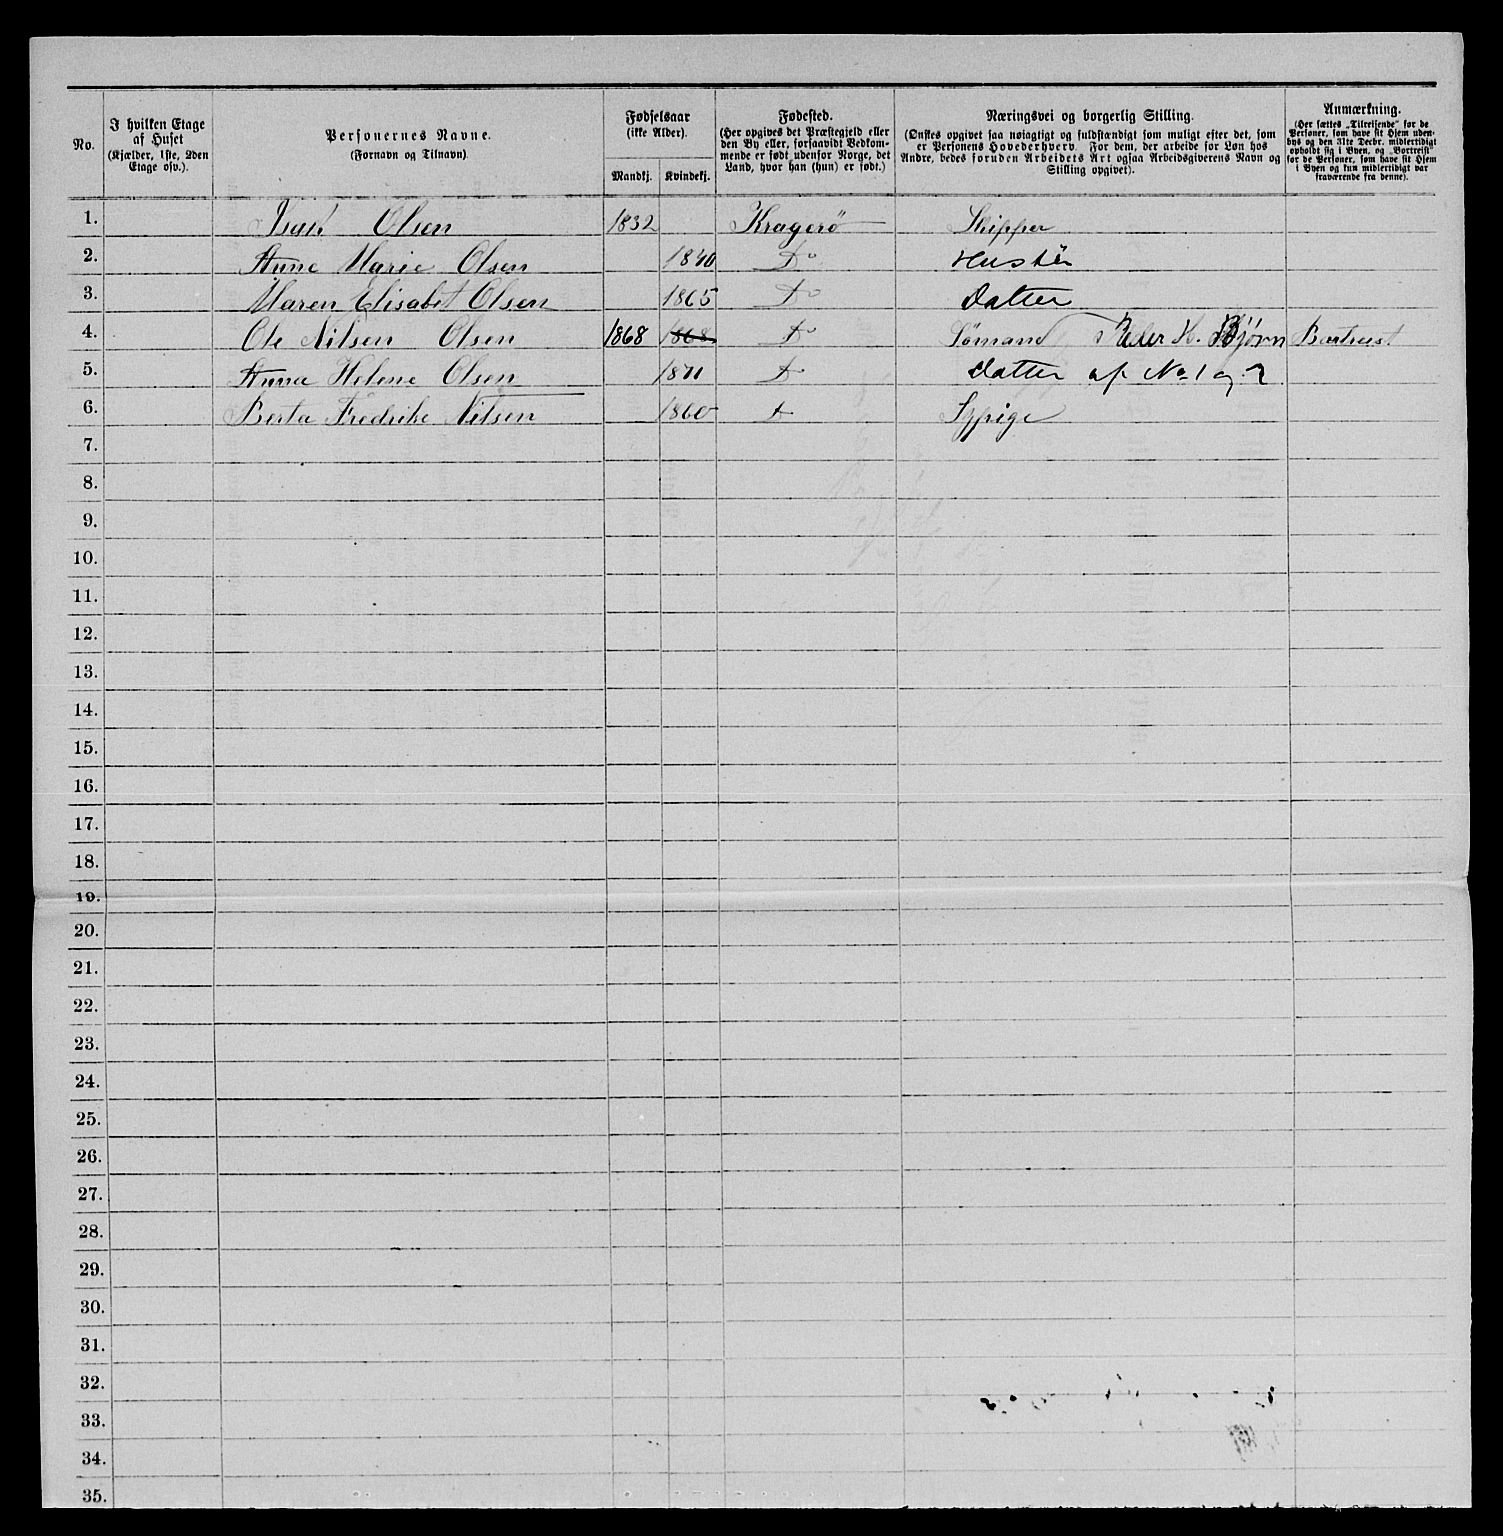 No.
I hvilken Etage
af Huset
(Kjælder, 1ste, 2den
Etage osv.).
Personernes Navne.
(Fornavn og Tilnavn)
Fødselsaar
(ikke Alder).
Mandkj. Kvindekj.
Fødested.
(Her opgives det Præstegjeld eller
den By eller, forsaavidt Vedkom-
mende er født udenfor Norge, det
Land, hvor han (hun) er født.)
Næringsvei og borgerlig Stilling.
(Ønskes opgivet saa nøiagtigt og fuldstændigt som muligt efter det, som
er Personens Hovederhverv. For dem, der arbeide for Løn hos
Andre, bedes foruden Arbeidets Art ogsaa Arbeidsgiverens Navn og
Stilling opgivet).
Anmærkning.
(Her sættes „Tilreisende“ for de
Personer, som have sit Hjem uden-
bys og den 31te Decbr. midlertidigt
opholdt sig i Byen, og „Bortreist“
for de Personer, som have sit Hjem
i Byen og kun midlertidigt var
fraværende fra denne).
1. Isak Olsen 1832 Kragerö Skipper
2. Anne Marie Olsen 1840 Do Hustru
3. Maren Elisabet Olsen 1865 Do Datter
4. Ole Nilsen Olsen 1868 1868 Do Sømand Reder H. Bjørn Bortreist
5. Anna Helene Olsen 1871 D Datter af No 1 og 2
6. Berta Fredrike Nilsen 1860 D
7.
8.
9.
10.
11.
12.
13.
14.
15.
16.
17.
18.
19.
20.
21.
22.
23.
24.
25.
26.
27.
28.
29.
30.
31.
32.
33.
34.
35.